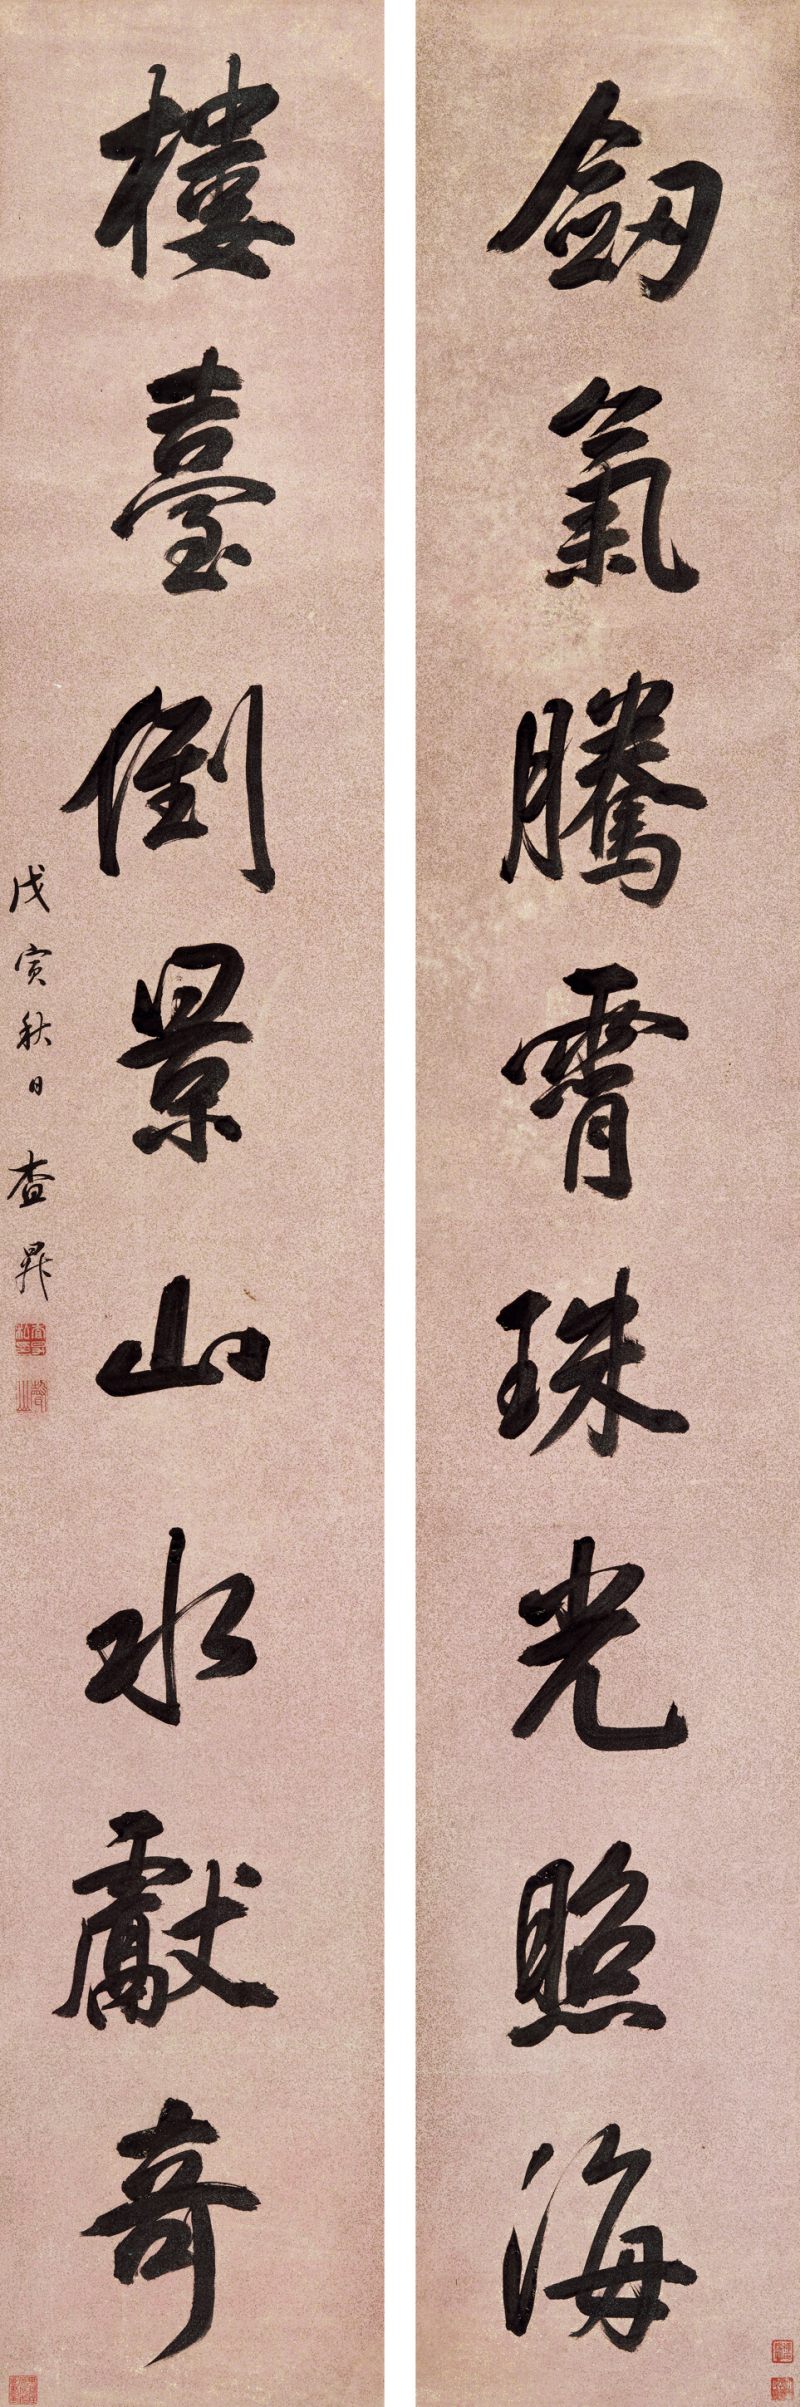 劒氣騰霄珠光照海
樓臺倒景山水獻奇
戊寅秋日查昇